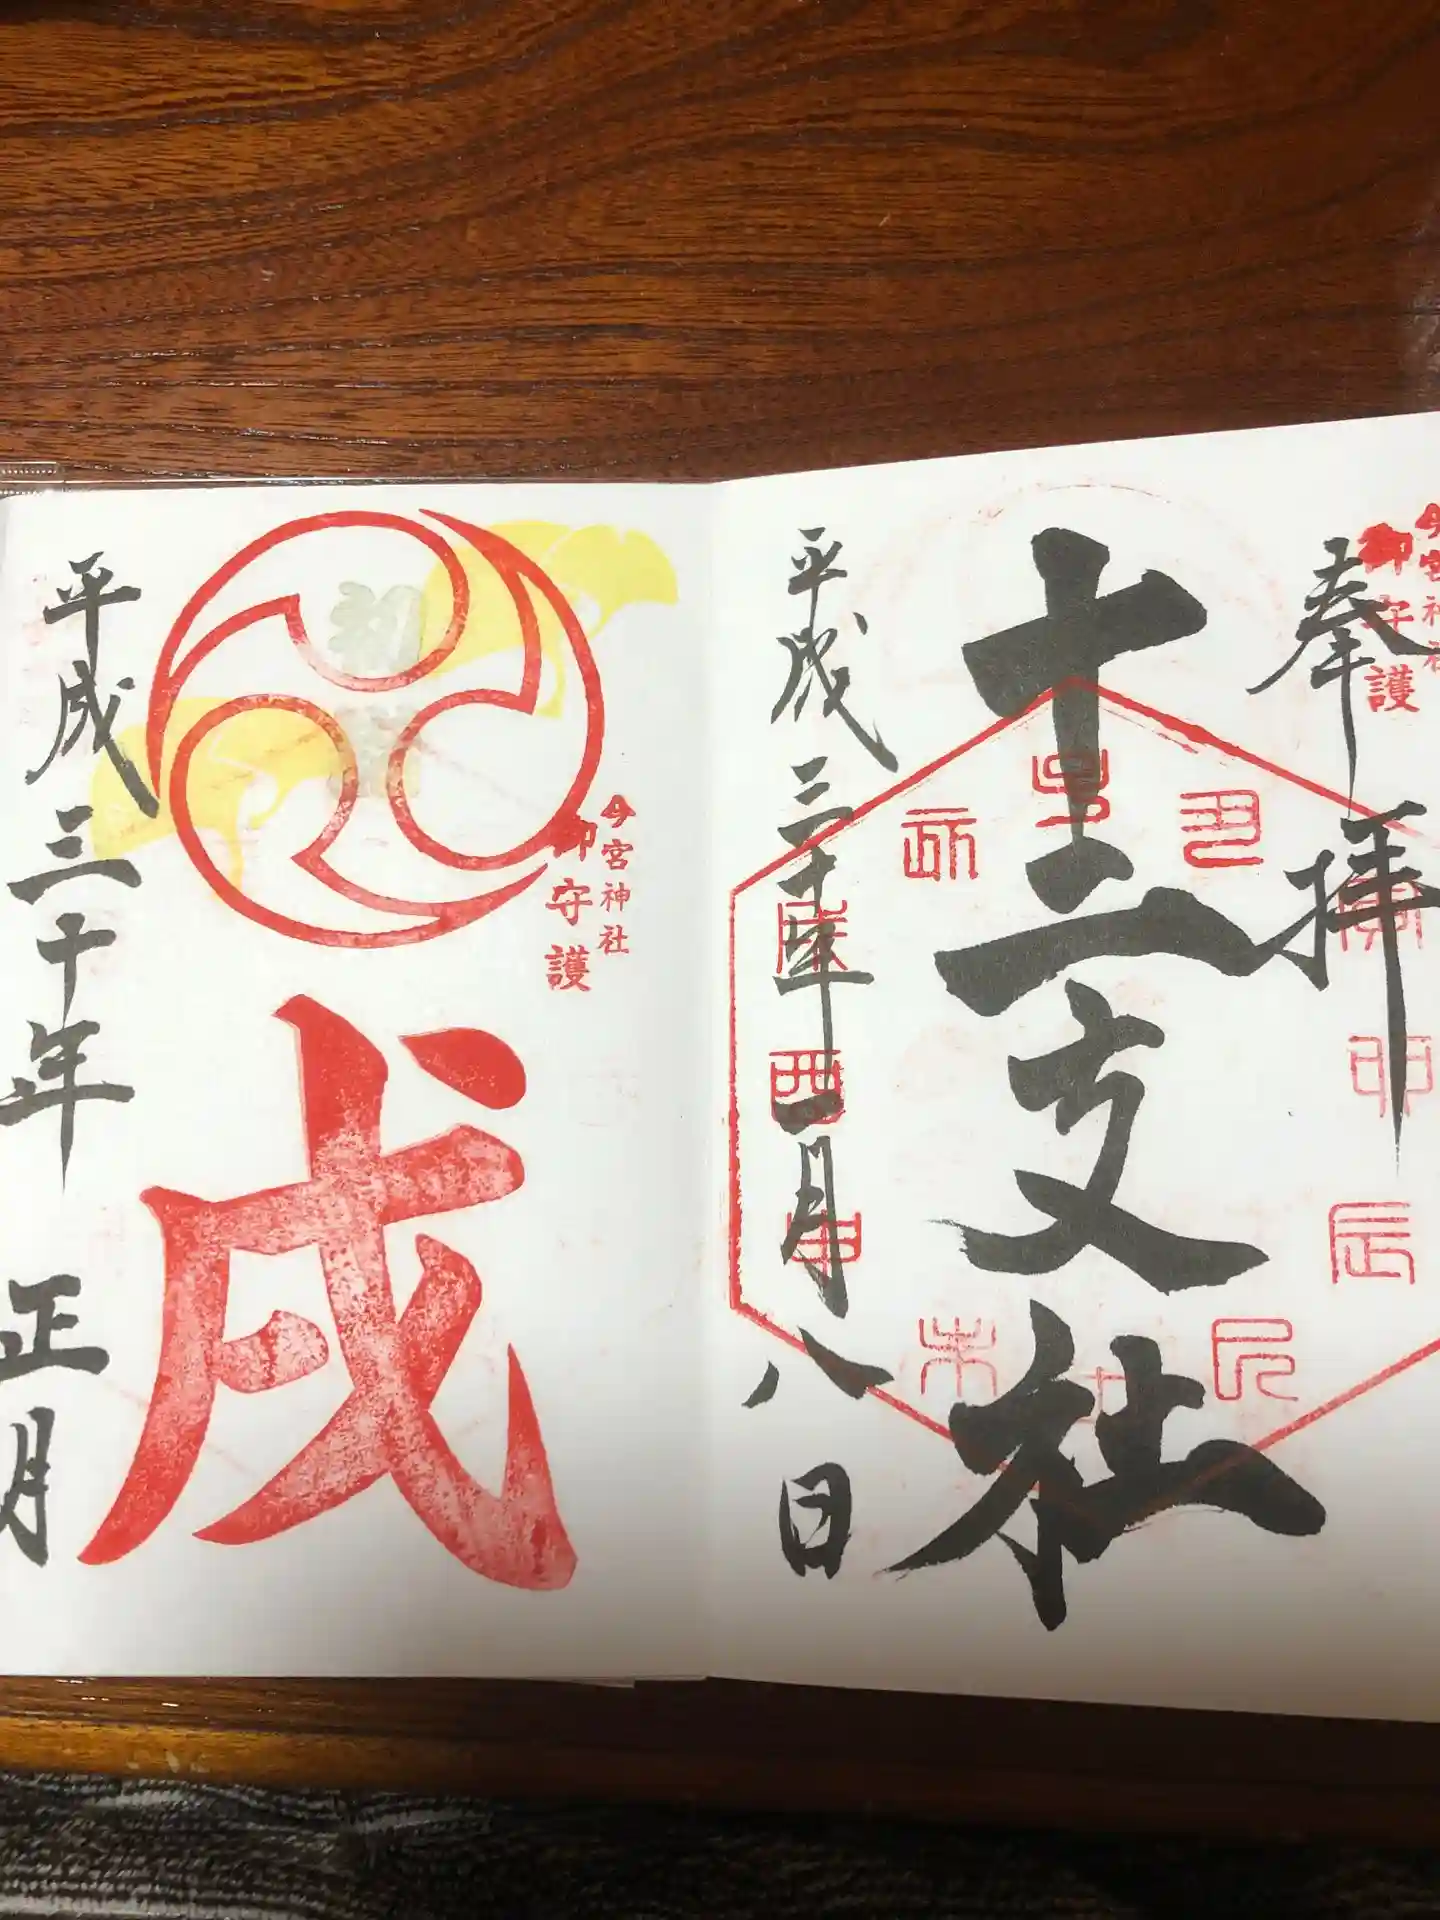 今宮神社
御守護
奉拝
十二支社
子
丑
寅
卯
辰
巳
未
申
酉
戌
亥
平成三十年一月八日
今宮神社
御守護
初
戌
平成三十年
正月